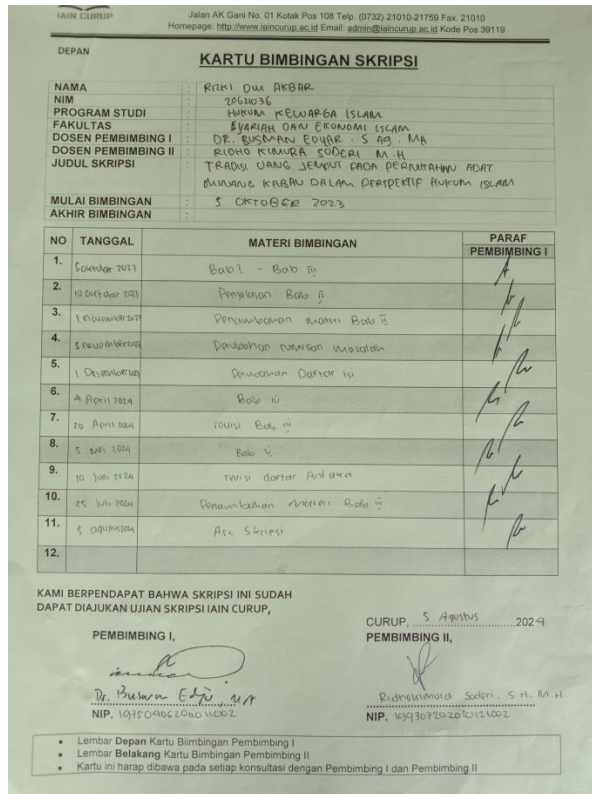 IAIN CURUP
Jalan AK Gani No. 01 Kotak Pos 108 Telp. (0732) 21010-21759 Fax. 21010
Homepage: http://www.iaincurup.ac.id Email: admin@iaincurup.ac.id Kode Pos 39119
DEPAN
KARTU BIMBINGAN SKRIPSI
NAMA : RIZKI DWI AKBAR
NIM : 20621036
PROGRAM STUDI : HUKUM KELUARGA ISLAM
FAKULTAS : SYARIAH DAN EKONOMI ISLAM
DOSEN PEMBIMBING I : DR. BUSMAN EDYAR. S AG. MA
DOSEN PEMBIMBING II : RIDHO KIMURA SODERI M.H
JUDUL SKRIPSI : TRADISI UANG JEMPUT PADA PERNIKAHAN ADAT
MINANG KABAU DALAM PERSPEKTIF HUKUM ISLAM
MULAI BIMBINGAN : 5 OKTOBER 2023
AKHIR BIMBINGAN :
NO TANGGAL MATERI BIMBINGAN PARAF
PEMBIMBING I
1. 5 oktober 2023 Bab I - Bab III
2. 10 Oktober 2023 Penjelasan Bab II
3. 1 November 2023 Penambahan materi Bab II
4. November 2023 Perubahan rumusan masalah
5. 1 Desember 2023 Perubahan Daftar isi
6. 4 April 2024 Bab IV
7. 20 April 2024 revisi Bab IV
8. 5 Mei 2024 Bab V
9. 10 Juni 2024 revisi daftar Pustaka
10. 25 Juli 2024 Penambahan Materi Bab IV
11. 5 Agustus 2024 Acc Skripsi
12.
KAMI BERPENDAPAT BAHWA SKRIPSI INI SUDAH
DAPAT DIAJUKAN UJIAN SKRIPSI IAIN CURUP,
CURUP, 5 Agustus 2024
PEMBIMBING I,
PEMBIMBING II,
Dr. Busman Edyar, MA
Ridhokimura Soderi. S H. M H.
NIP. 197504062011011002
NIP. 199307202020121002
• Lembar Depan Kartu Biimbingan Pembimbing I
• Lembar Belakang Kartu Bimbingan Pembimbing II
• Kartu ini harap dibawa pada setiap konsultasi dengan Pembimbing I dan Pembimbing II